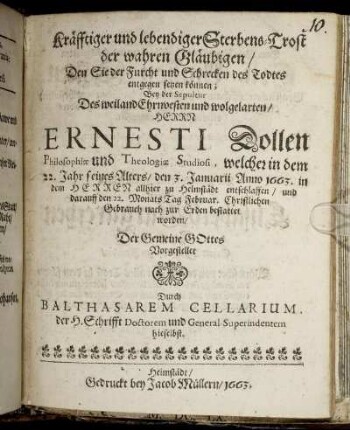 10.
Kräfftiger und lebendiger Sterbens-Trost
der wahren Gläubigen/
Den Sie der Furcht und Schrecken des Todtes
entgegen setzen können;
Bey der Sepultur
Des weiland Ehrnvesten und wolgelarten/
HERRN
ERNESTI Dollen
Philosophiæ und Theologiæ Studiosi, welcher in dem
22. Jahr seines Alters/ den 3. Januarii Anno 1663. in
dem HERREN allhier zu Helmstädt entschlaffen/ und
darauff den 22. Monats Tag Februar. Christlichen
Gebrauch nach zur Erden bestattet
worden/
Der Gemeine GOttes
Vorgestellet
Durch
BALTHASAREM CELLARIUM,
der H. Schrifft Doctorem und General-Superindenten
hieselbst.
Helmstädt/
Gedruckt bey Jacob Müllern/ 1663.